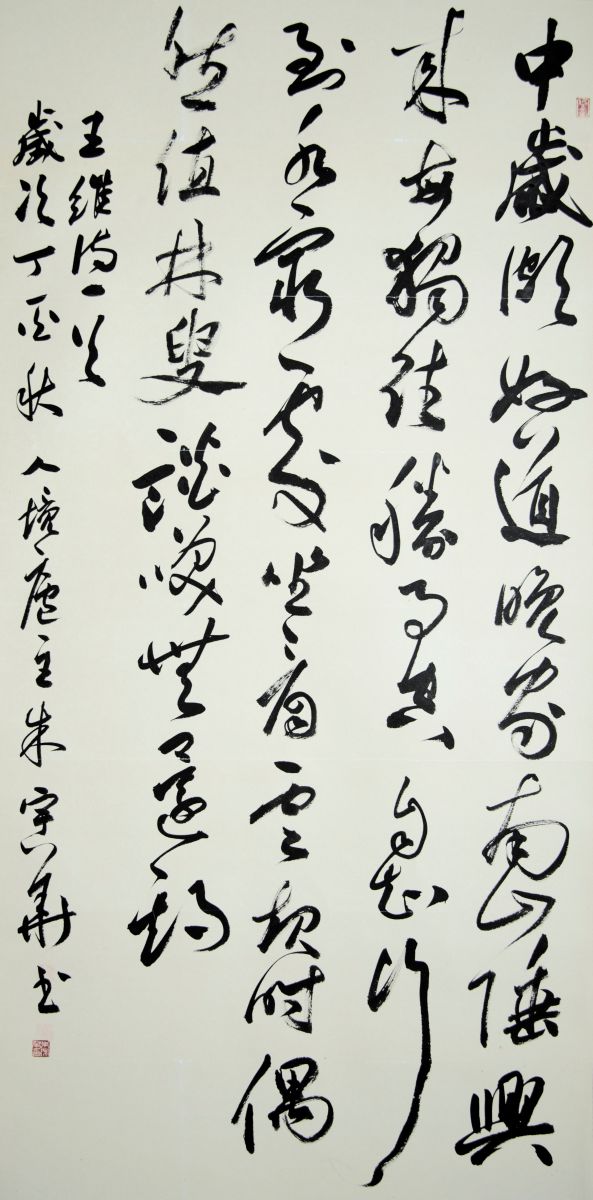 中歲頗好道晚家南山陲興
來每獨往勝事空自知行
到水窮處坐看雲起時偶
然值林叟談笑無還期
王維詩一首
歲次丁酉秋人境廬主朱寅華書